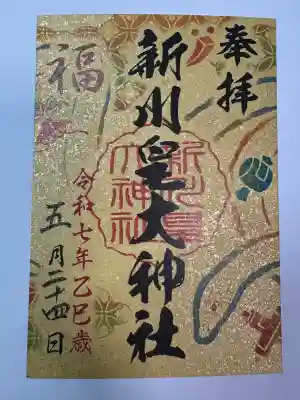 奉拝
新川皇大神社
新川皇
大神社
福
令和七年乙巳歳
五月二十四日